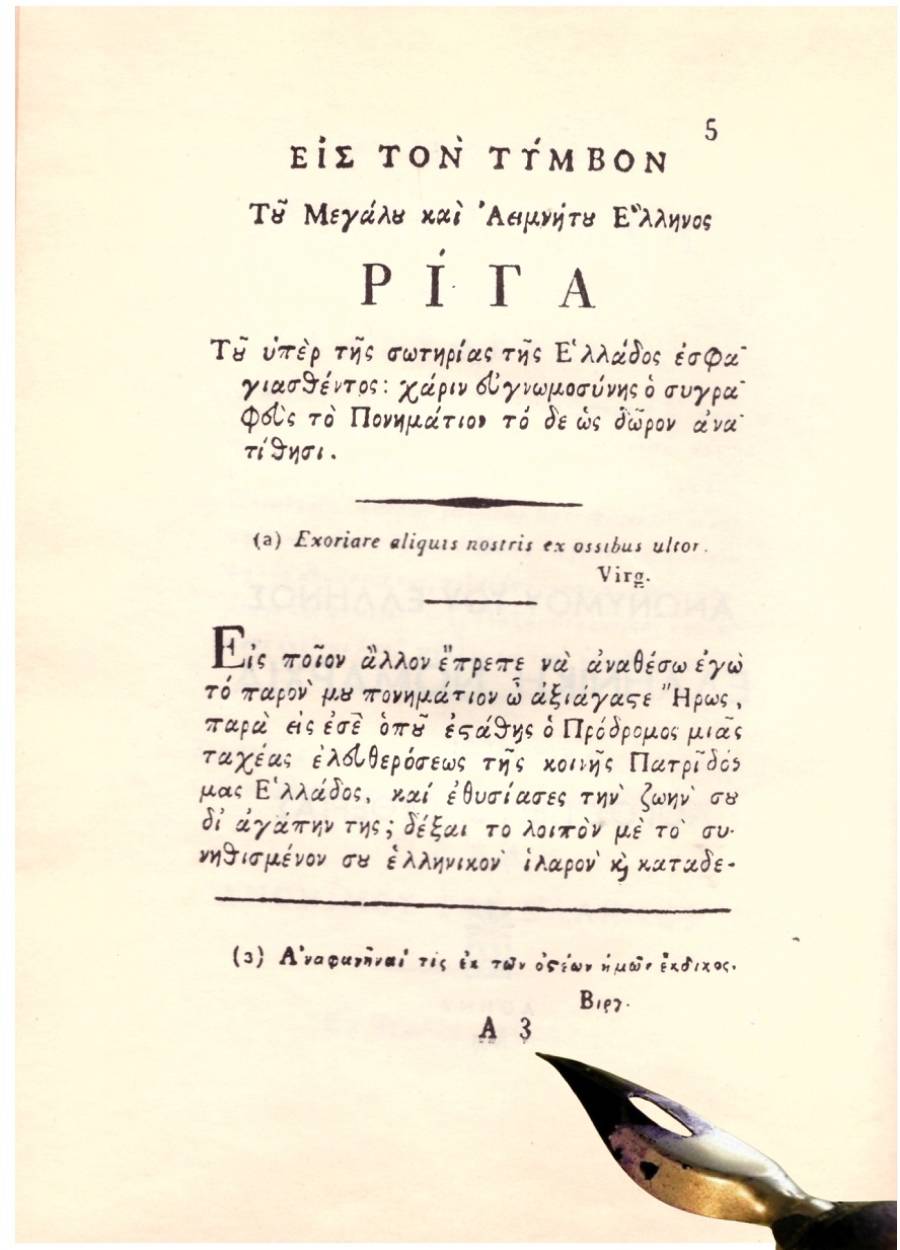 5
ΕἰΣ ΤΟΝ̀ ΤΎΜΒΟΝ
Τȣ͂ Μεγάλȣ καὶ Ἀειμνήτȣ Ἕλληνος
ΡΊΓΑ
Τȣ͂ ὑπὲρ τῆς σωτηρίας τῆς Ἑλλάδος ἐσφα-
γιασθέντος: χάριν εὐγνωμοσύνης ὁ συγρα-
φεὺς τὸ Πονημάτιον τό δε ὡς δῶρον ἀνα-
τίθησι.
(a) Exoriare aliquis nostris ex ossibus ultor.
Virg.
Εἰς ποῖον ἄλλον ἔπρεπε νὰ ἀναθέσω ἐγὼ
τό παρον̀ μȣ πονημάτιον ὦ ἀξιάγαϛε Ἥρως,
παρὰ εἰς ἐσὲ ὁπȣ͂ ἐϛάθης ὁ Πρόδρομος μιᾶς
ταχέας ἐλευθερόσεως τῆς κοινῆς Πατρῖδός
μας Ἑλλάδος, καί ἐθυσίασες την̀ ζωην̀ σȣ
δἰ ἀγάπην της; δέξαι το λοιπὸν μὲ τὸ συ-
νηθισμένον σȣ ἑλληνικον̀ ἱλαρον̀ ϗ̀ καταδε-
(3) Ἀναφανῆναί τὶς ἐκ τῶν ὀϛέων ἡμῶν ἔκδικος.
Βιργ.
Α 3